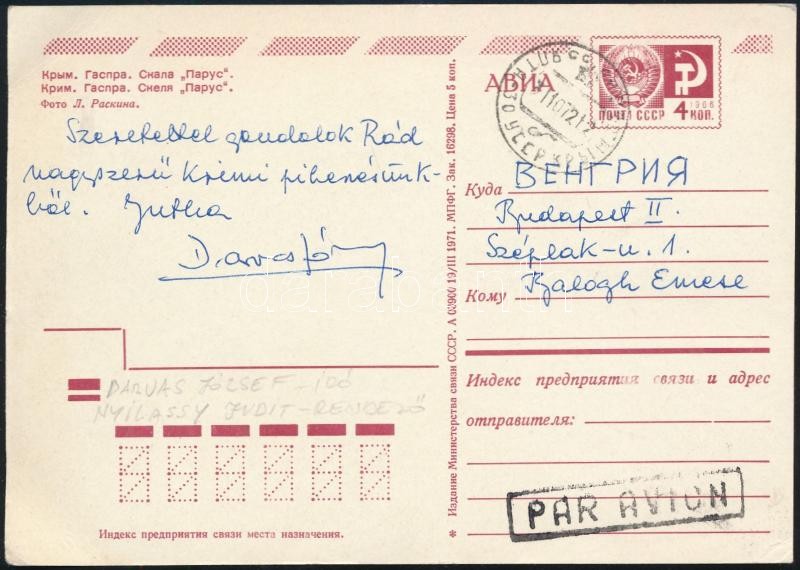 Крым. Гаспра. Скала „Парус“.
Крим. Гаспра. Скеля „Парус“.
Фото Л. Раскина.
Szeretettel gondolok Rád
nagyszerű Krími pihenésünk-
ből. Jutka
DARVAS JÓZSEF - ÍRÓ
NYÍLASSY JUDIT - RENDEZŐ
Индекс предприятия связи места назначения.
* Издание Министерства связи СССР. А 03900 19/III 1971. МПФГ. Зак. 16298. Цена 5 коп.
АВИА
ПОЧТА СССР
1966
4 КОП.
Куда ВЕНГРИЯ
Budapest II.
Széplak-u. 1.
Кому Balogh Emese
Индекс предприятия связи и адрес
отправителя:
PAR AVION
darabanth